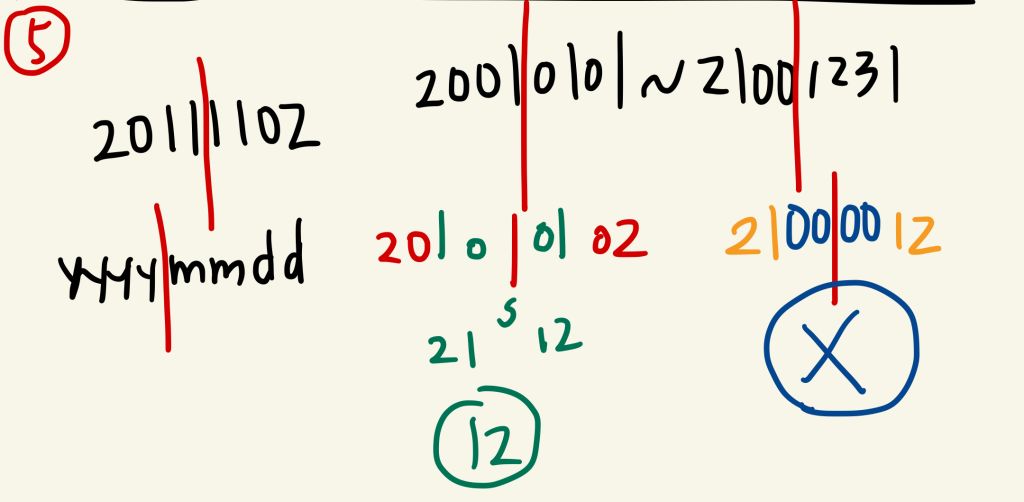 5
20010101 ~ 21001231
20111102
2010 0102
21000012
yyyymmdd
21 ~ 12
X
12